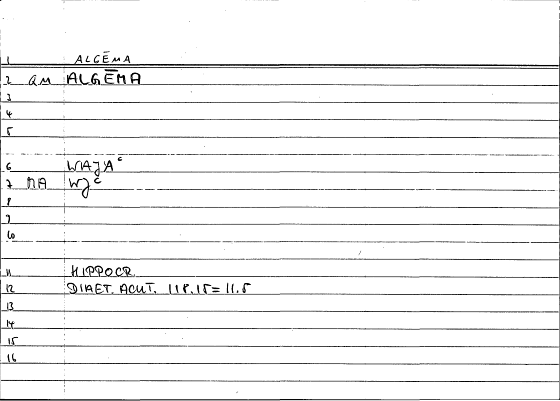 1 ALGĒMA
2 am ALGĒMA
3
4
5
6 WAJAʿ
7 MA WJʿ
8
9
10
11 HIPPOCR.
12 DIAET. ACUT. 118.15 = 11.5
13
14
15
16